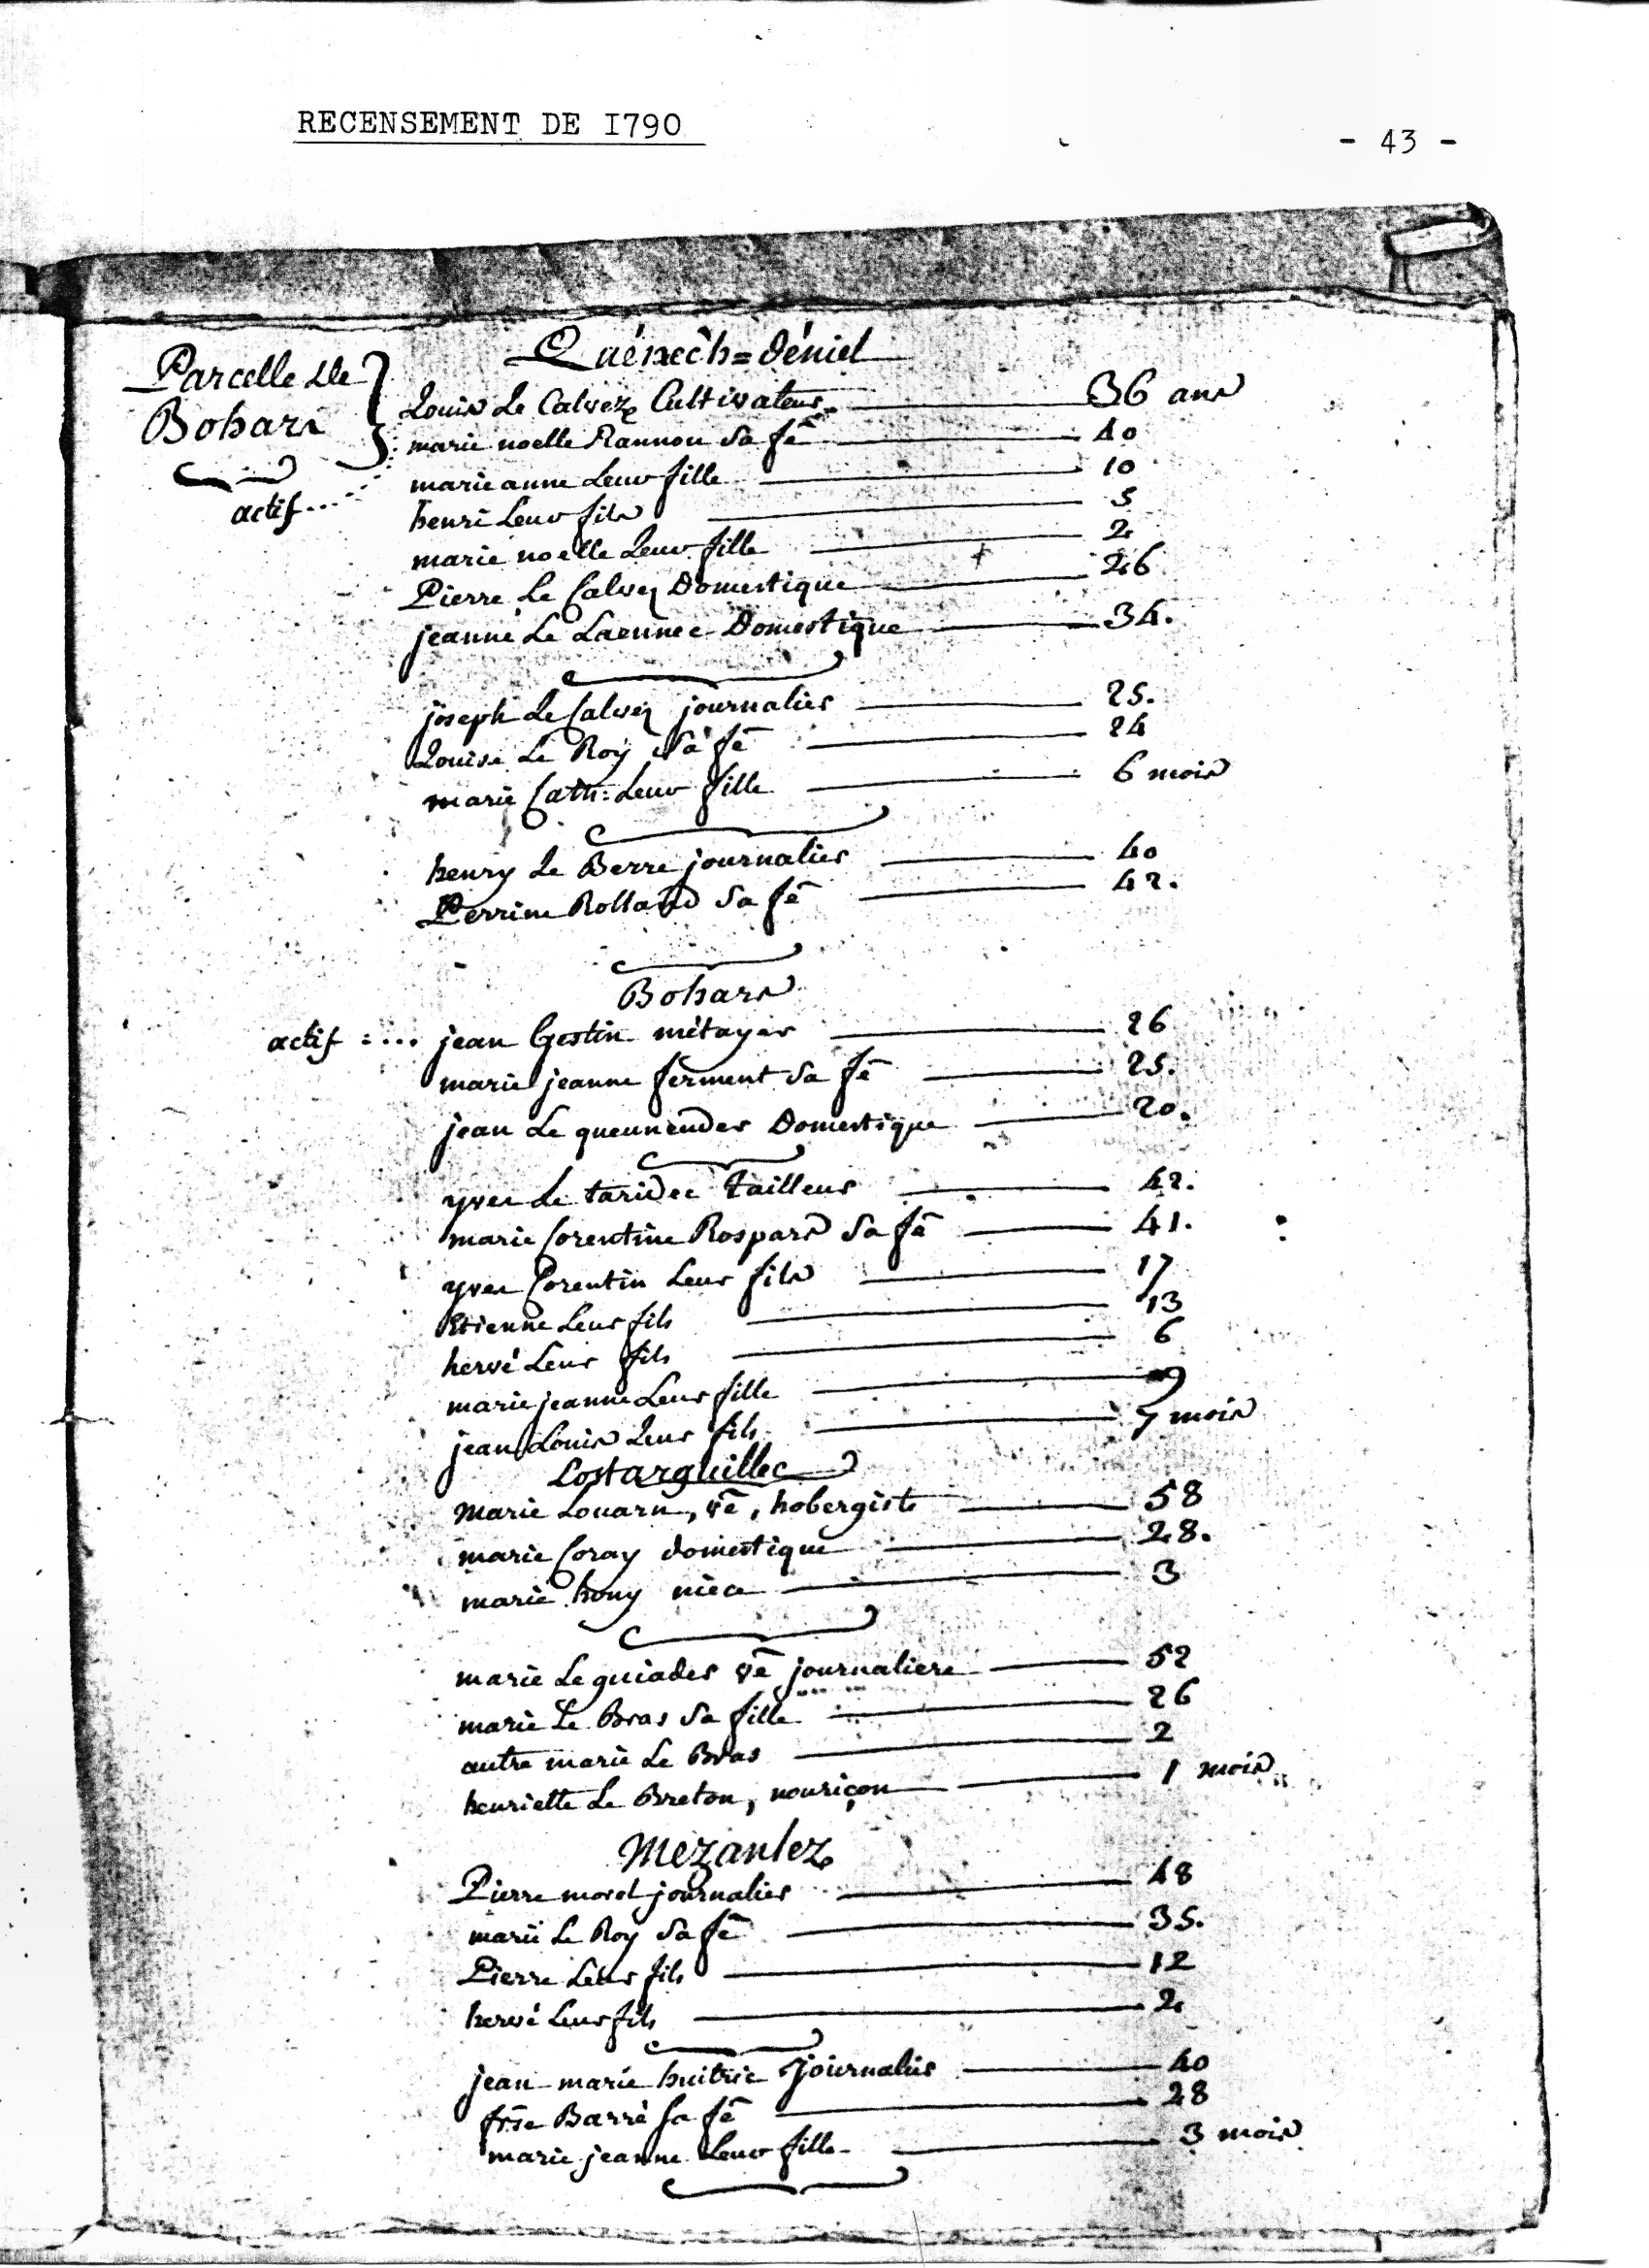 RECENSEMENT DE I790
- 43 -
Parcelle de
Bohars
actif...
Quénec'h=déniel
Louis Le Calvez Cultivateur 36 ans
marie noelle Rannou sa fe 40
marie anne Leur fille 10
henri Leur fils 5
marie noelle Leur fille 2
Pierre Le Calvez Domestique 26
jeanne Le Laennec Domestique 34.
joseph Le Calvez journalier 25.
Louise Le Roy sa fe 24
marie Cath: Leur fille 6 mois
henry Le Berre journalier 40
Perrine Rolland sa fe 42.
Bohars
actif :... jean Gestin métayer 26
marie jeanne ferment sa fe 25.
jean Le queuneuder Domestique 20.
yves Le taridec tailleur 42.
marie Corentine Rospars sa fe 41.
yves Corentin Leur fils 17
Etienne Leur fils 13
hervé Leur fils 6
marie jeanne Leur fille 9
jean Louis Leur fils 7 mois
Lostarguillec
marie Louarn, ve, hobergiste 58
marie Coray domestique 28.
marie houy nièce 3
marie Le guiader ve journaliere 52
marie Le Bras sa fille 26
autre marie Le Bras 2
henriette Le Breton, nouriçon 1 mois
Mezanlez
Pierre morel journalier 48
marie Le Roy sa fe 35.
Pierre Leur fils 12
hervé Leur fils 2
jean marie huitric journalier 40
frse Barré sa fe 28
marie jeanne Leur fille 3 mois